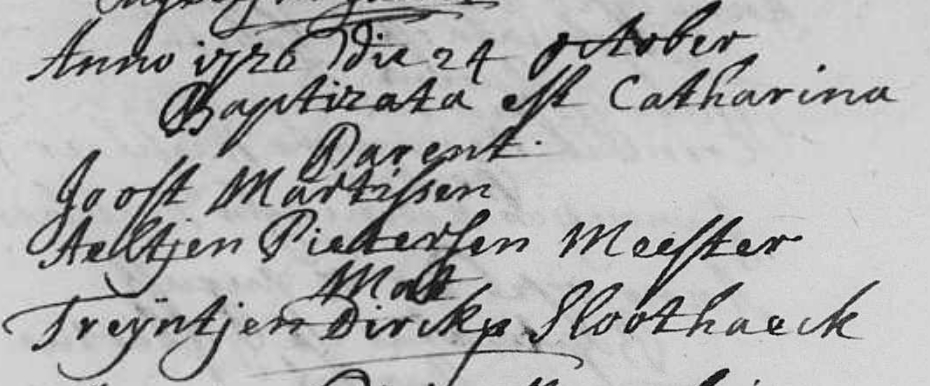 Anno 1726 die 24 october
Baptizata est Catharina
Parent.
Joost Martissen
Aeltjen Pietersen Meester
Mat
Treÿntjen Dircks Sloothaeck